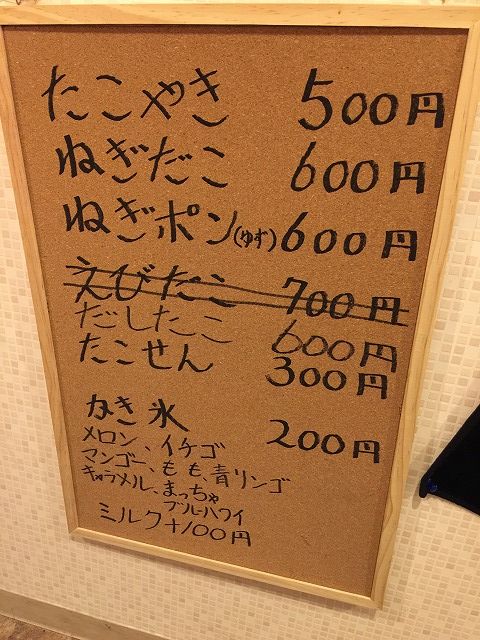 たこやき 500円
ねぎだこ 600円
ねぎポン(ゆず) 600円
えびたこ 700円
だしたこ 600円
たこせん 300円
かき氷 200円
メロン、イチゴ
マンゴー、もも、青リンゴ
キャラメル、まっちゃ
ブルーハワイ
ミルク+100円